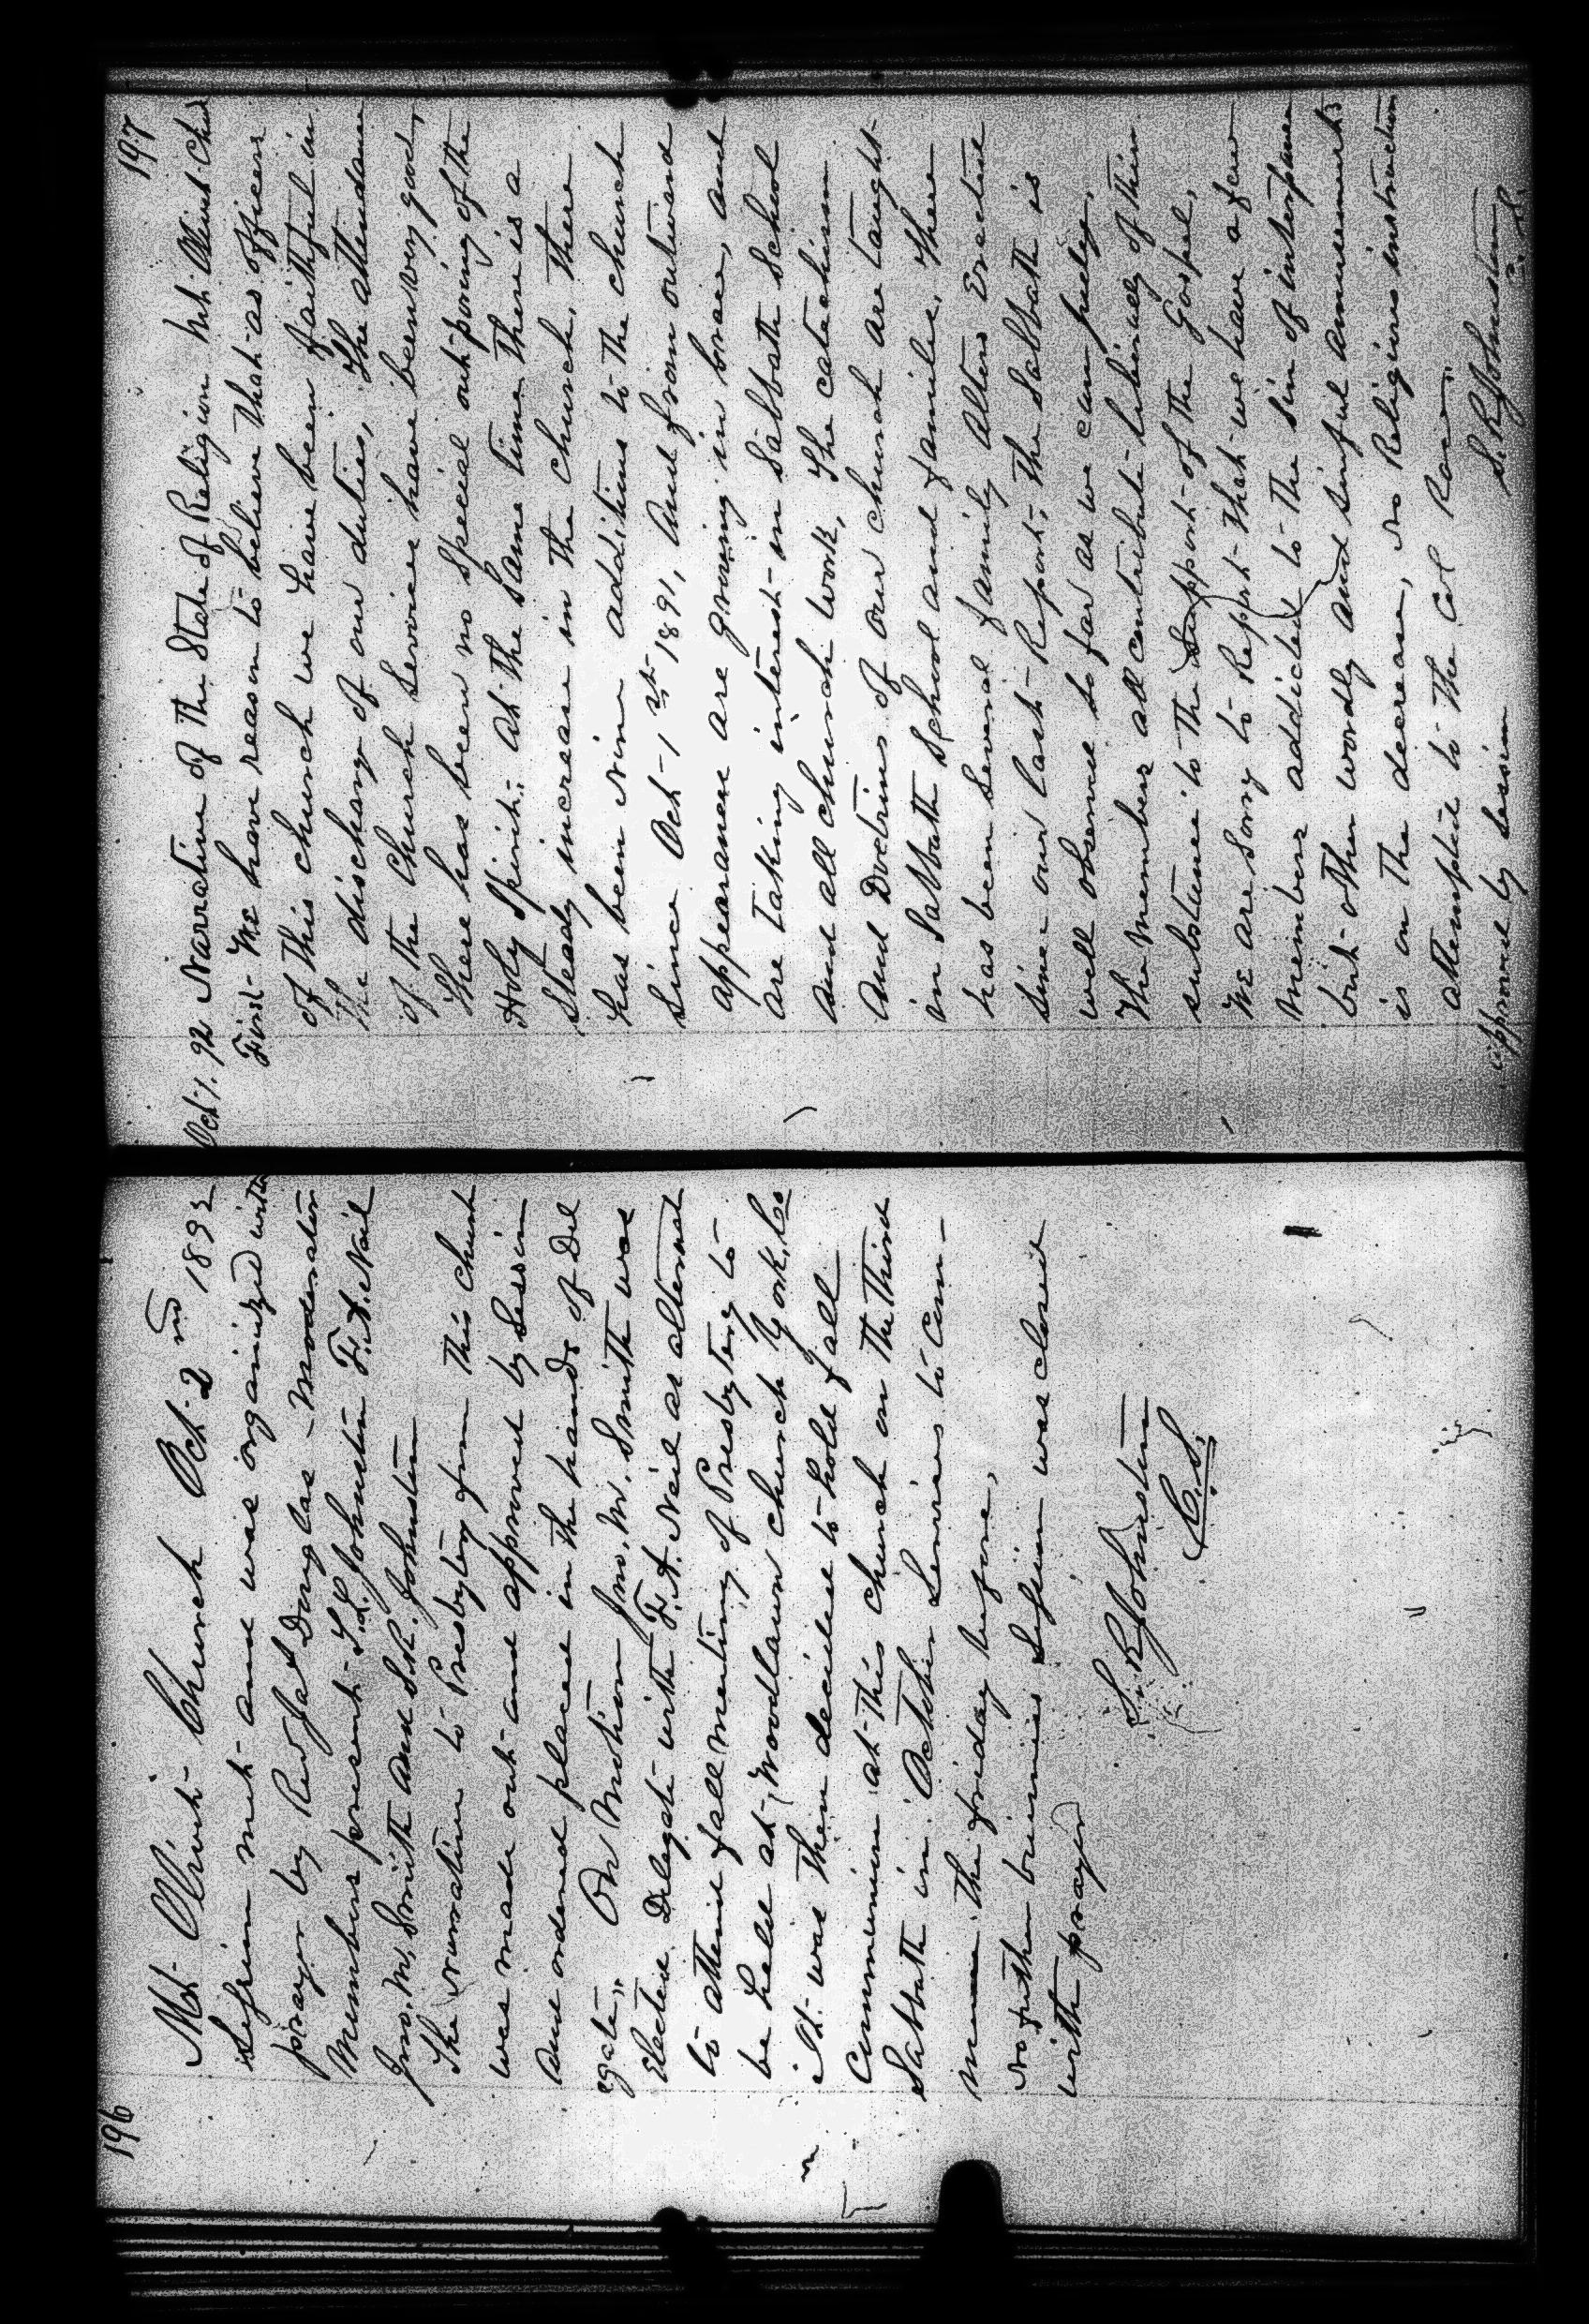 196
Mt- Olivit- Church Oct- 2nd 1892
Session met- and was organized with
prayer by Revd Jas Douglas - Moderator
Members present- T.L. Johnston F.A. Neil
Jno. M. Smith and S.R. Johnston
The Narration to Presbytery from this church
was made out- and approved by Session
and ordered placed in the hands of Del
egate,. On Motion Jno. M. Smith was
Elected Delegate with F.A. Neil as alternat
to attend fall meeting of Presbytery to
be held at- Woodlawn church York, Co
It- was then decided to hold fall
Communion at- this church on the third
Sabbath in October Services to Com-
mence the friday before,
No futher business Session was closed
with prayer
S. R. Johnston
C. S.
197
Oct 1. 92 Narrative of the State of Religion Mt. Olivit Chd
First- We have reason to believe that- as officers
of this church we have been faithful in
the discharge of our duties, The attendance
of the Church Service have been very good,
There has been no special out-poring of the
Holy Spirit; at the same time there is a
Steady increase in the church, There
has been Nine additions to the church
Since Oct- 1st 1891, and from outward
appearance are growing in Grace, and
are taking interest- in Sabbath School
and all church work, The catechism
and Doctrins of our church are taught-
in Sabbath School and familie, There
has been Several family Alters Erected
Since our last- Report; The Sabbath is
well observed so far as we can judge,
The members all contribute liberally of their
substance to the Support- of the Gospel,
We are Sorry to Report- that- we have a few
members addicted to the sin of intemperance
but- other wordly and sinful amusements
is on the decrease, No Religious instruction
attempted to the Col Race,
S. R. Johnston
C. S.
approved by Session